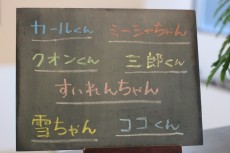 カールくん ミーシャちゃん
クオンくん 三郎くん
すいれんちゃん
雪ちゃん ココくん